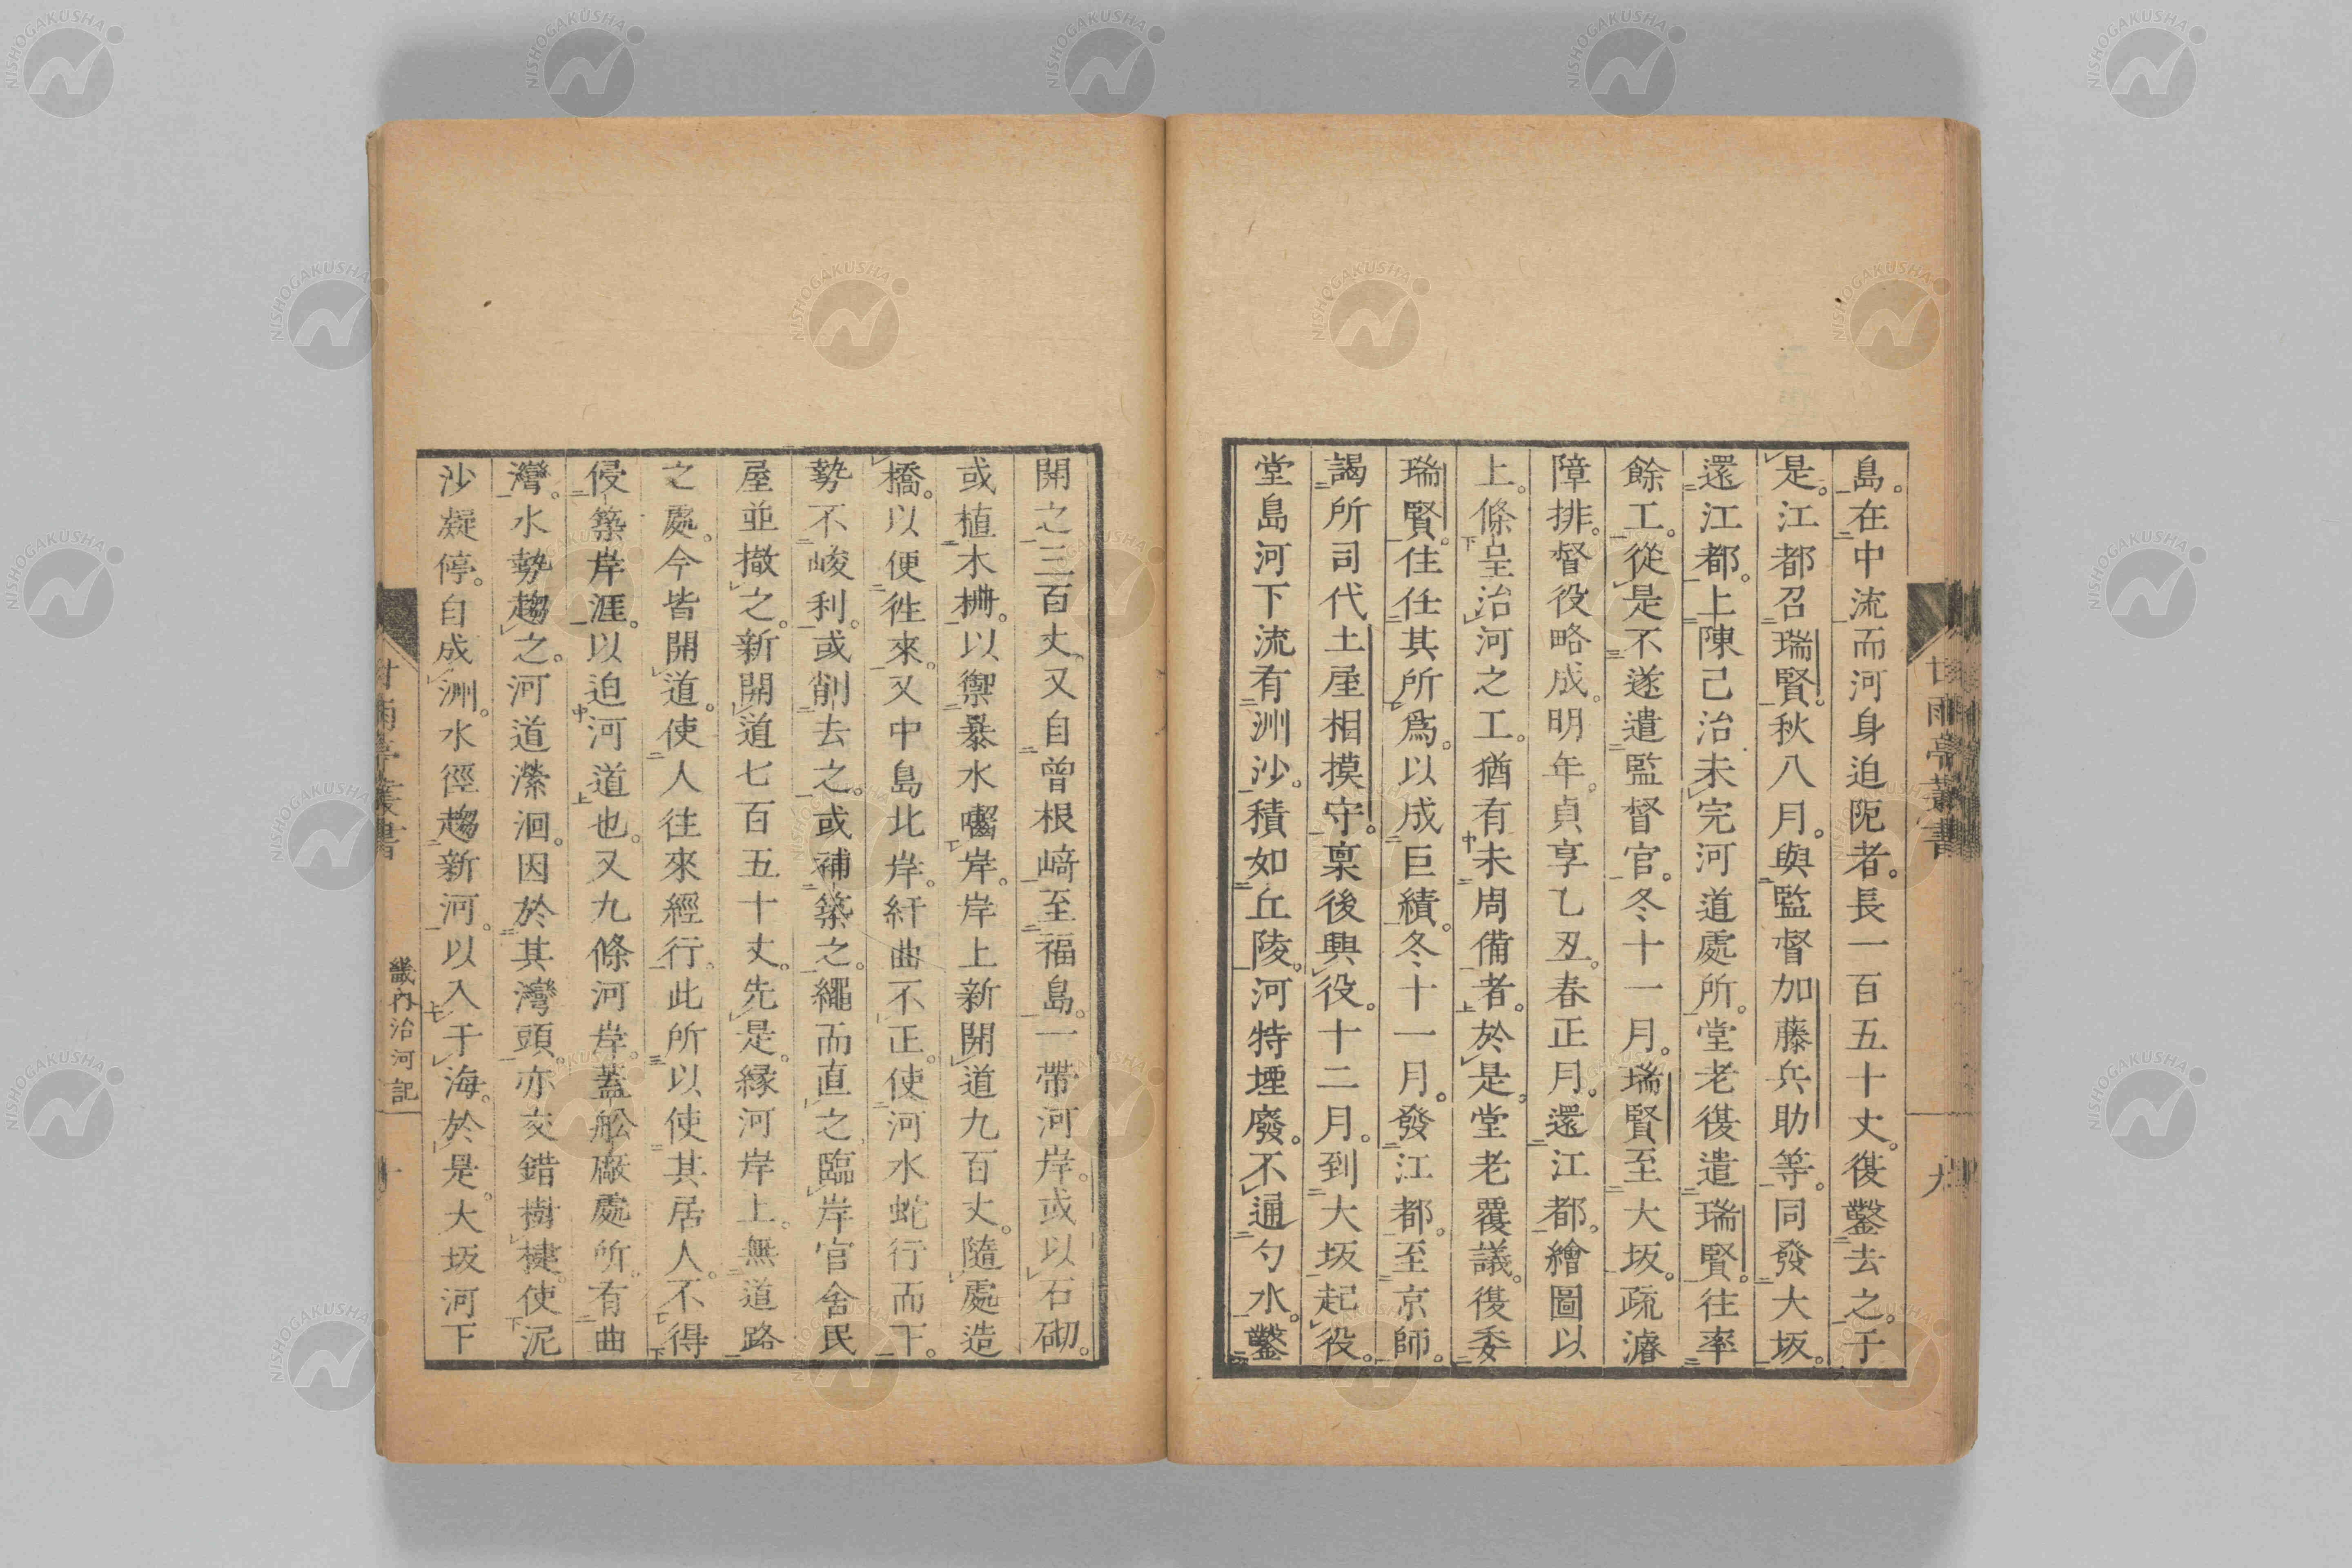 島。在中流而河身迫阨者。長一百五十丈。復鑿去之。于
是。江都召瑞賢。秋八月。與監督加藤兵助等。同發大坂。
還江都。上陳己治未完河道處所。堂老復遣瑞賢。往率
餘工。從是不遂遣監督官。冬十一月。瑞賢至大坂。疏濬
障排。督役略成。明年。貞享乙丑。春正月。還江都。繪圖以
上。條呈治河之工。猶有未周備者。於是。堂老覆議。復委
瑞賢。往任其所爲。以成巨績。冬十一月。發江都。至京師。
謁所司代土屋相摸守。稟後興役。十二月。到大坂起役。
堂島河下流有洲沙。積如丘陵。河特堙廢。不通勺水。鑿
甘雨亭叢書
九
開之三百丈、又自曾根﨑至福島。一帶河岸。或以石砌。
或植木柵。以禦暴水囓岸。岸上新開道九百丈。隨處造
橋。以便徃來。又中島北岸。紆曲不正。使河水蛇行而下。
勢不峻利。或削去之。或補築之。繩而直之、臨岸官舍民
屋並撤之。新開道七百五十丈。先是。縁河岸上。無道路
之處。今皆開道。使人往來經行。此所以使其居人。不得
侵築岸涯。以迫河道也。又九條河岸。蓋舩廠處所。有曲
灣。水勢趨之。河道瀠洄。因於其灣頭。亦交錯樹揵。使泥
沙凝停。自成洲。水徑趨新河。以入于海。於是。大坂河下
甘雨亭叢書
畿內治河記